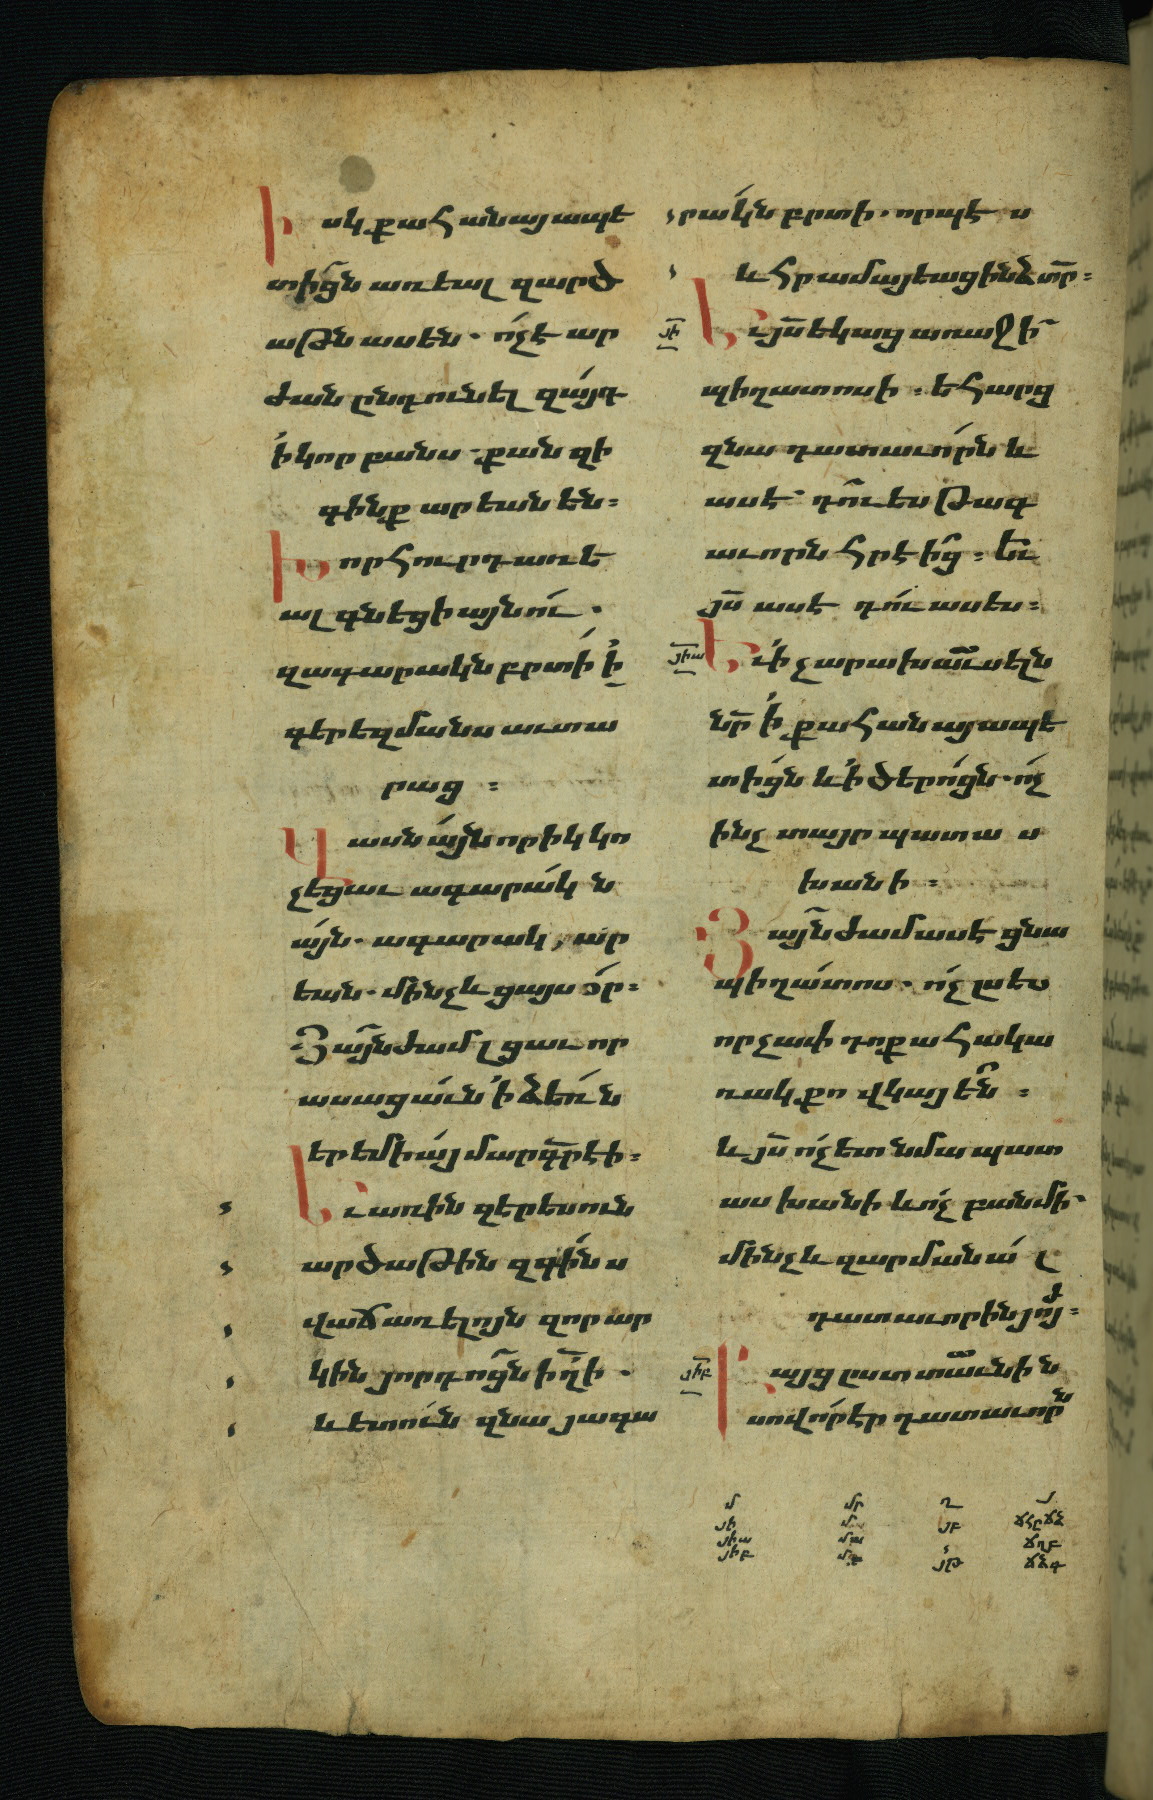 Իսկ քահանայապե
տիցն առեալ զարծ
աթն ասեն. ոչ է ար
ժան ընդունել զայդ
ի կորբանս. քանզի
գինք արեան են։
Խորհուրդ առե
ալ գնեցի այնու.
զագարակն բրտի ի
գերեզմանս աւտա
րաց։
Վասն այն որիկ կո
չեցաւ ագարակն
այն. ագարակ, ար
եան. մինչև ցայսօր։
Յայնժամ լցաւ որ
ասացաւն ի ձեռն
երեմիայ մարգրէի։
Եւ առին զերեսուն
արծաթին զգինս
վաճառելոյն զոր ար
կին յորդոցն իղի.
և ետուն զնա յագա
րակն բրտի. որպէս
և հրամայեացին ձ տր։
յի
Եւ յս եկաց առաջի
պիղատոսի։ եհարց
զնա դատաւորն և
ասէ դու ես թագ
աւորն հրէից։ Եւ
յս ասէ դու ասես։
յիա
Եւ ի չարախաւսելն
նր ի քահանայապե
տիցն և ի ծերոցն. ոչ
ինչ տայր պատաս
խանի։
Յայնժամ ասէ ցնա
պիղատոս. ոչ լսես
որչափ դոքա հակա
ռակ քո վկայեն։
և յս ոչ ետ նմա պատ
ասխանի և ոչ բանմի.
մինչև զարմանալ
դատաւորին յոյժ։
յիբ
Բայց ըստ տաւնին
սովոր էր դատաւորն
մ մր ղ յ
յի
յիա
յիբ